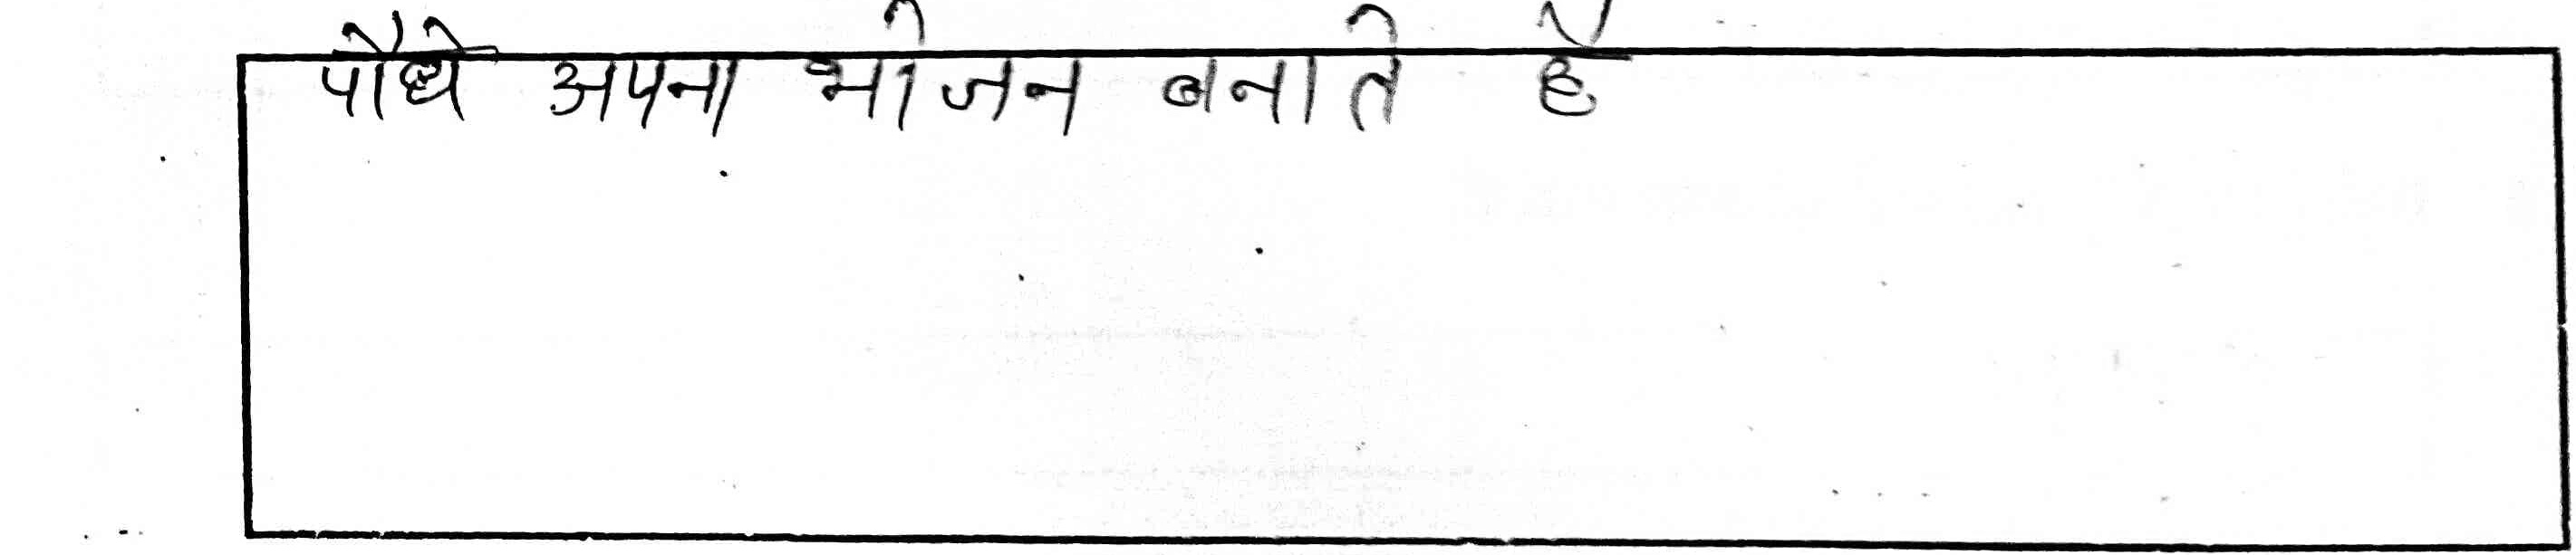 पौधे अपना भोजन बनाते है